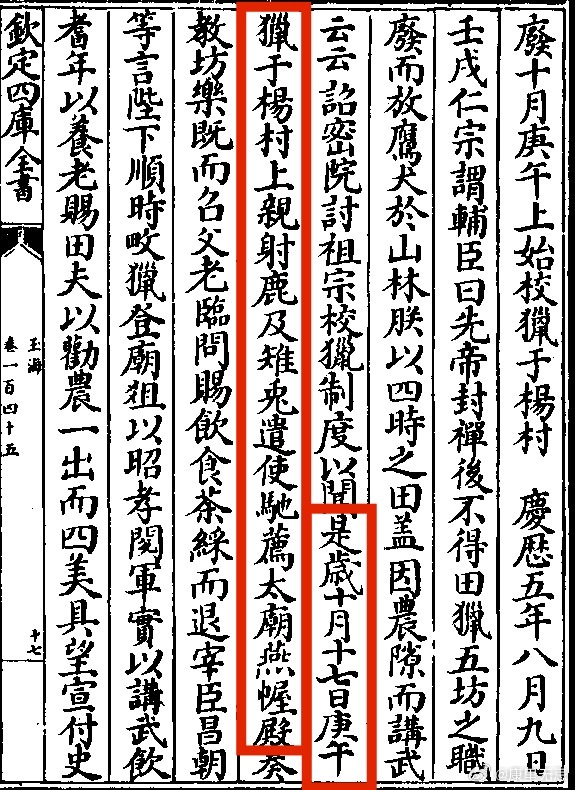 廢十月庚午上始校獵于楊村　慶歴五年八月九日
壬戌仁宗謂輔臣曰先帝封禪後不得田獵五坊之職
廢而放鷹犬於山林朕以四時之田盖因農隙而講武
云云詔密院討祖宗校獵制度以聞是歳十月十七日庚午
獵于楊村上親射鹿及雉兎遣使馳薦太廟燕幄殿奏
教坊樂既而召父老臨問賜飲食茶綵而退宰臣昌朝
等言陛下順時畋獵登廟俎以昭孝閲軍實以講武飲
耆年以養老賜田夫以勸農一出而四美具望宣付史
欽定四庫全書
玉海
卷一百四十五
十七